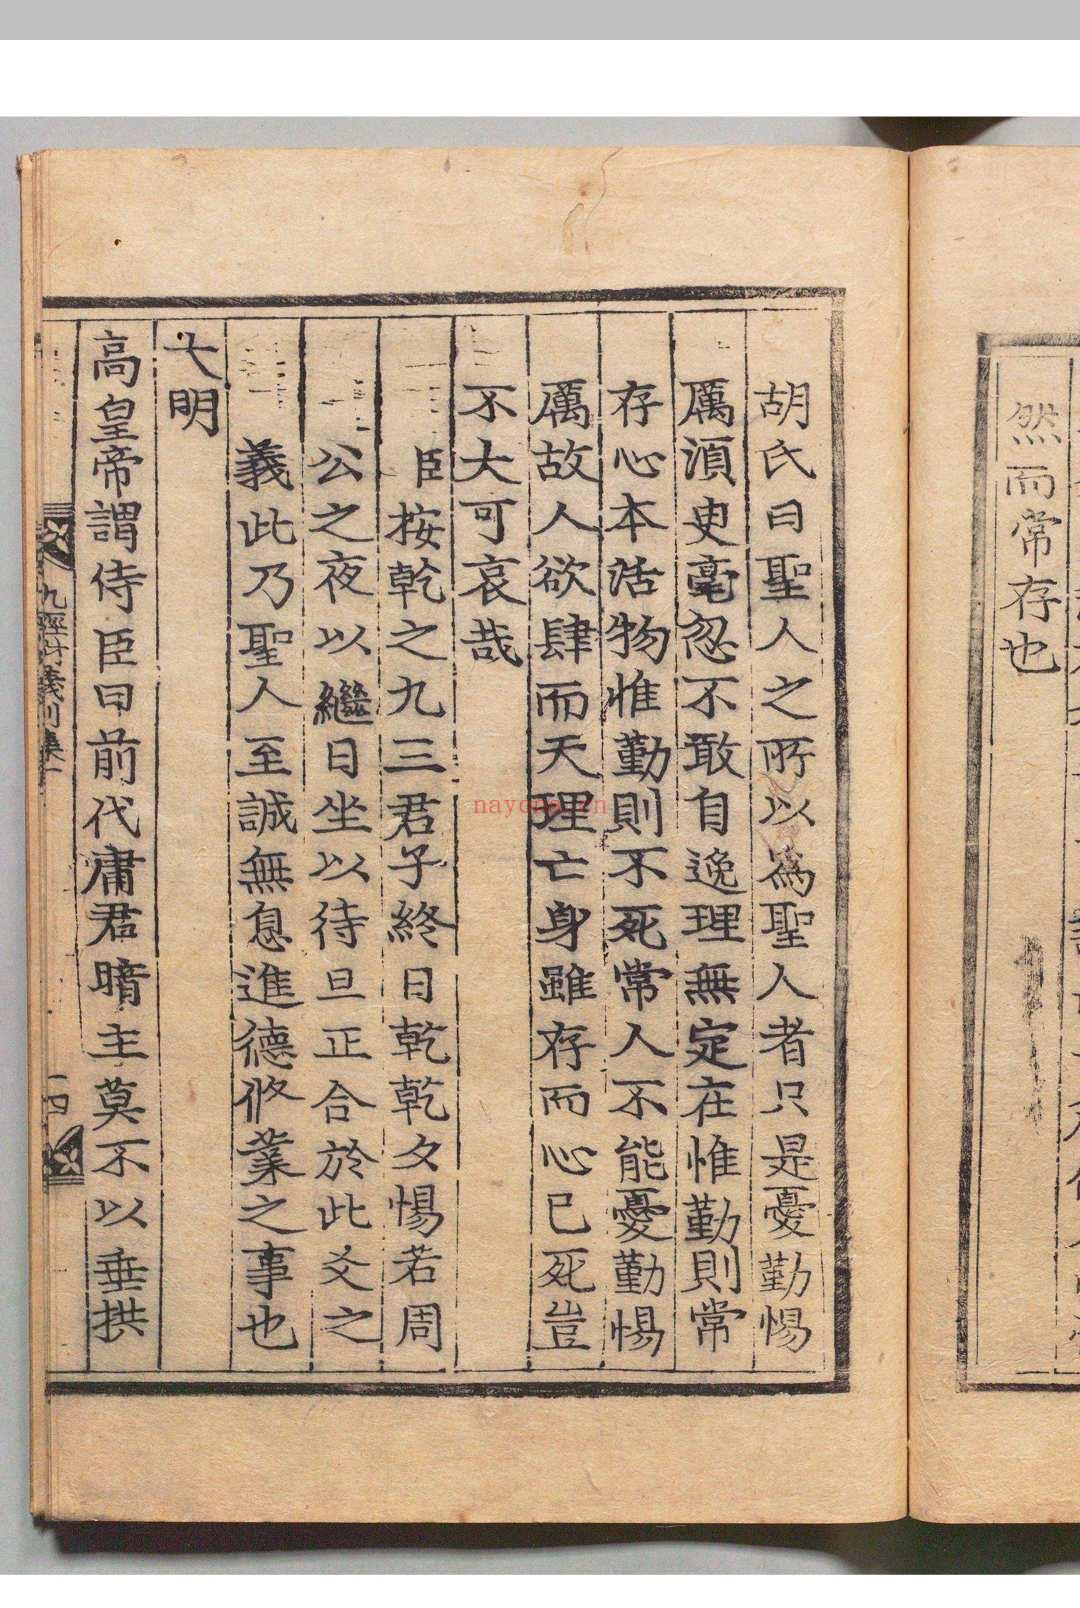 然而常存也
胡氏曰聖人之所以為聖人者只是憂勤惕
厲湏㬰毫忽不敢自逸理無定在惟勤則常
存心本活物惟勤則不死常人不能憂勤惕
厲故人欲肆而天理亡身雖存而心已死豈
不大可哀哉
臣按乾之九三君子終日乾乾夕惕若周
公之夜以繼日坐以待旦正合於此爻之
義此乃聖人至誠無息進德修業之事也
大明
高皇帝謂侍臣曰前代庸君暗主莫不以垂拱
九經衍義別集一
十四
nayona.cn